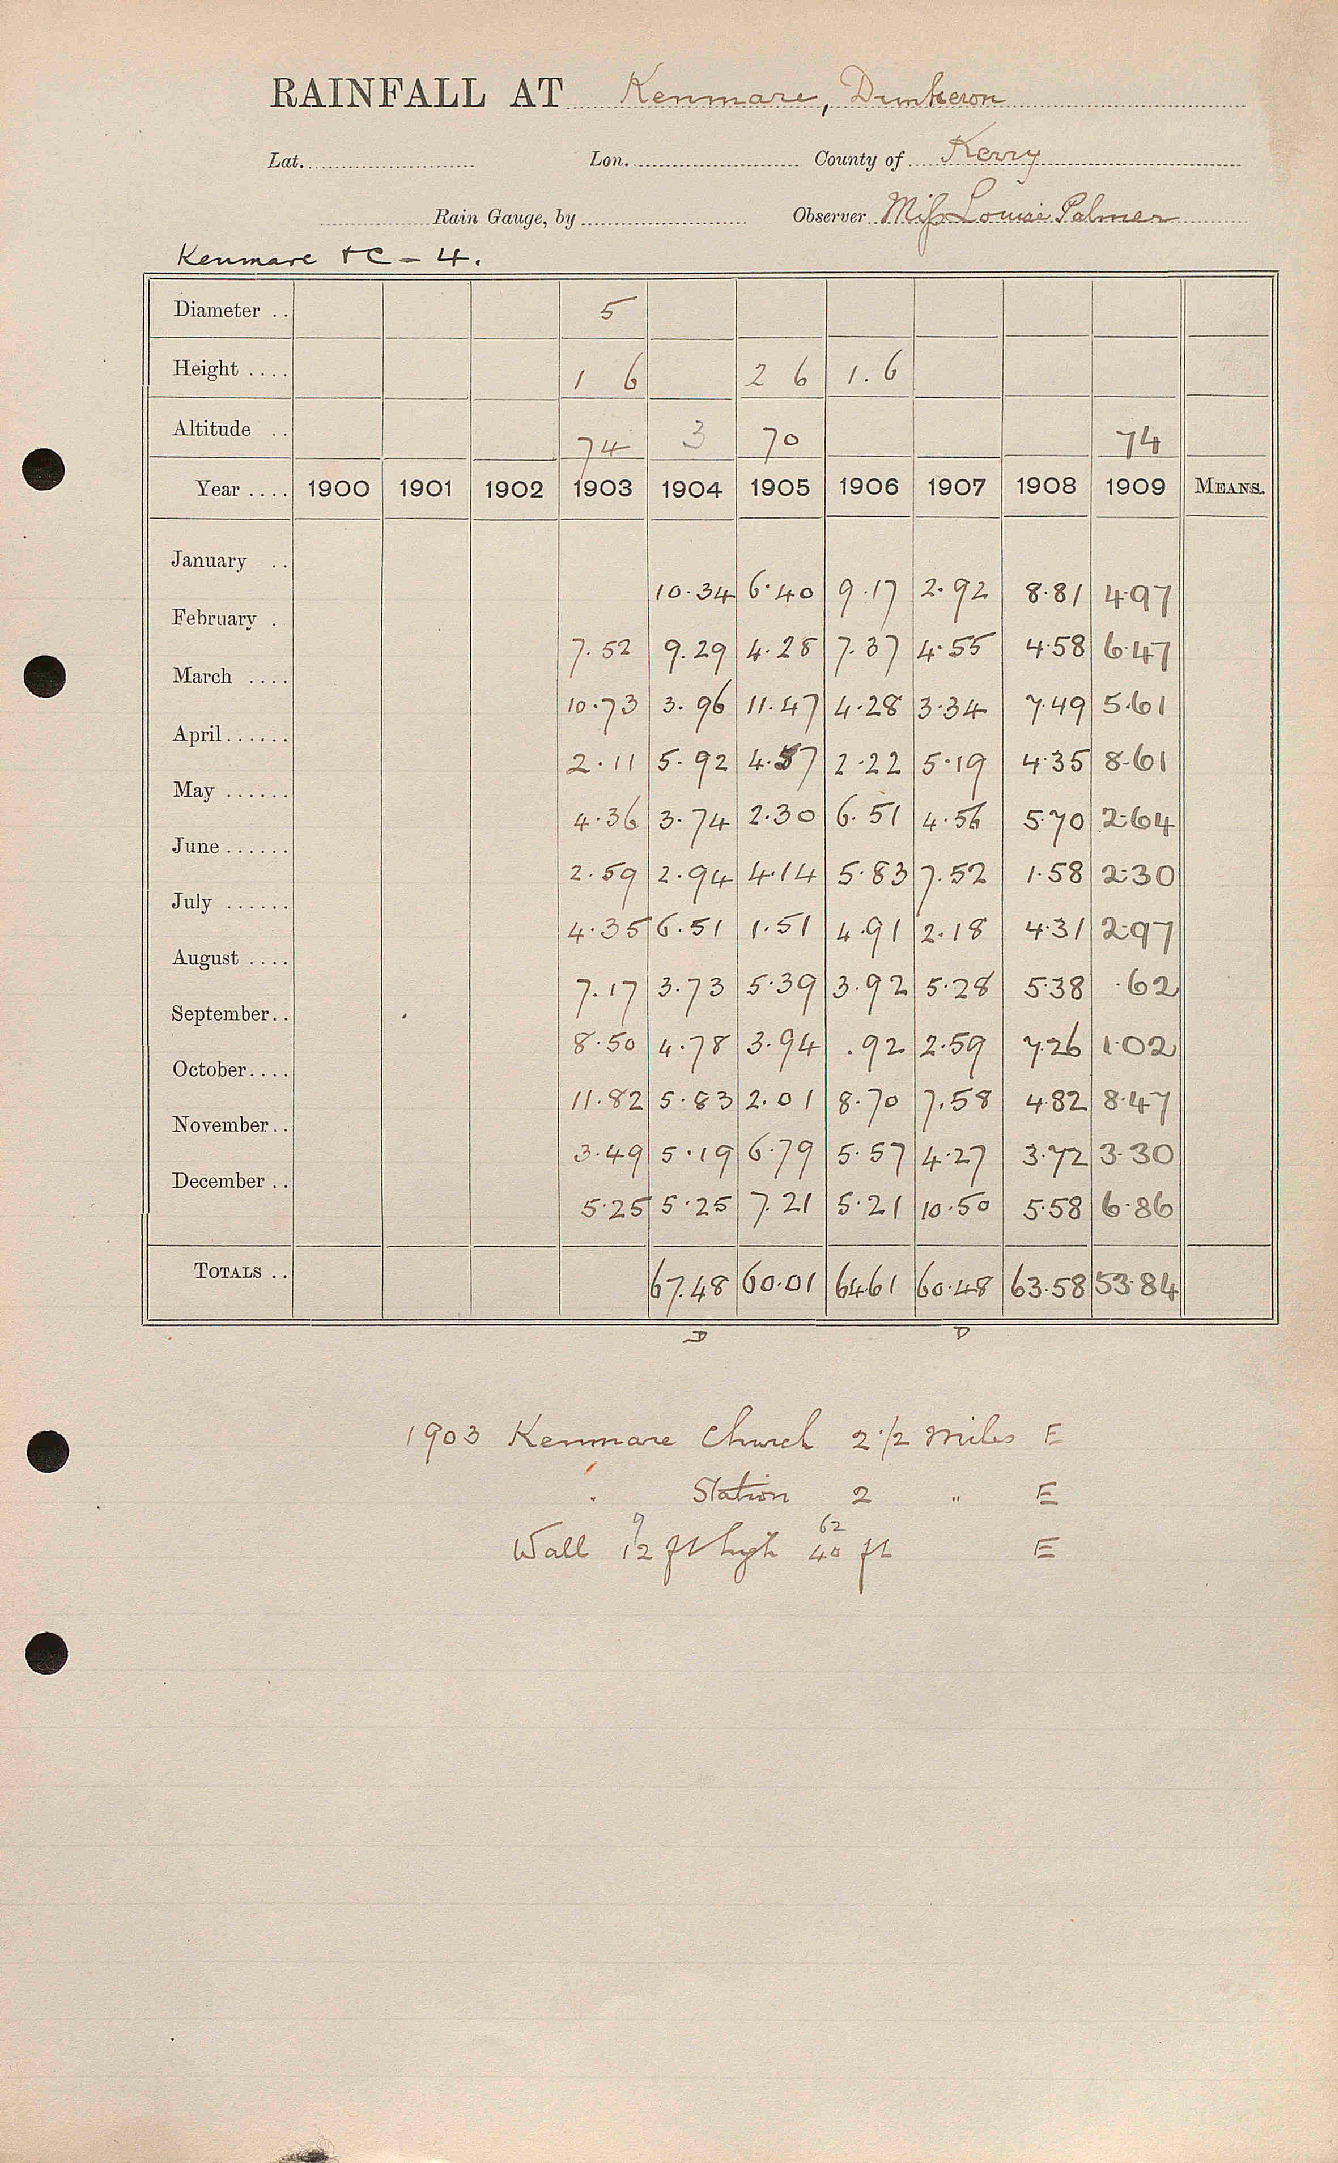 RAINFALL AT Kenmare, Dunkeron
Lat. Lon. County of Kerry
Rain Gauge, by Observer Miss Louise Palmer
Kenmare + C - 4.
Diameter .. 5
Height .... 1 6 2 6 1.6
Altitude .. 74 3 70 74
Year .... 1900 1901 1902 1903 1904 1905 1906 1907 1908 1909 MEANS.
January .. 10.34 6.40 9.17 2.92 8.81 4.97
February . 7.52 9.29 4.28 7.37 4.55 4.58 6.47
March .... 10.73 3.96 11.47 4.28 3.34 7.49 5.61
April ...... 2.11 5.92 4.57 2.22 5.19 4.35 8.61
May ...... 4.36 3.74 2.30 6.51 4.56 5.70 2.64
June ...... 2.59 2.94 4.14 5.83 7.52 1.58 2.30
July ...... 4.35 6.51 1.51 4.91 2.18 4.31 2.97
August .... 7.17 3.73 5.39 3.92 5.28 5.38 .62
September .. 8.50 4.78 3.94 .92 2.59 7.26 1.02
October .... 11.82 5.83 2.01 8.70 7.58 4.82 8.47
November .. 3.49 5.19 6.79 5.57 4.27 3.72 3.30
December .. 5.25 5.25 7.21 5.21 10.50 5.58 6.86
TOTALS .. 67.48 60.01 64.61 60.48 63.58 53.84
D D
1903 Kenmare Church 2 1/2 miles E
" Station 2 " E
9 62
Wall 12 ft high 40 ft E